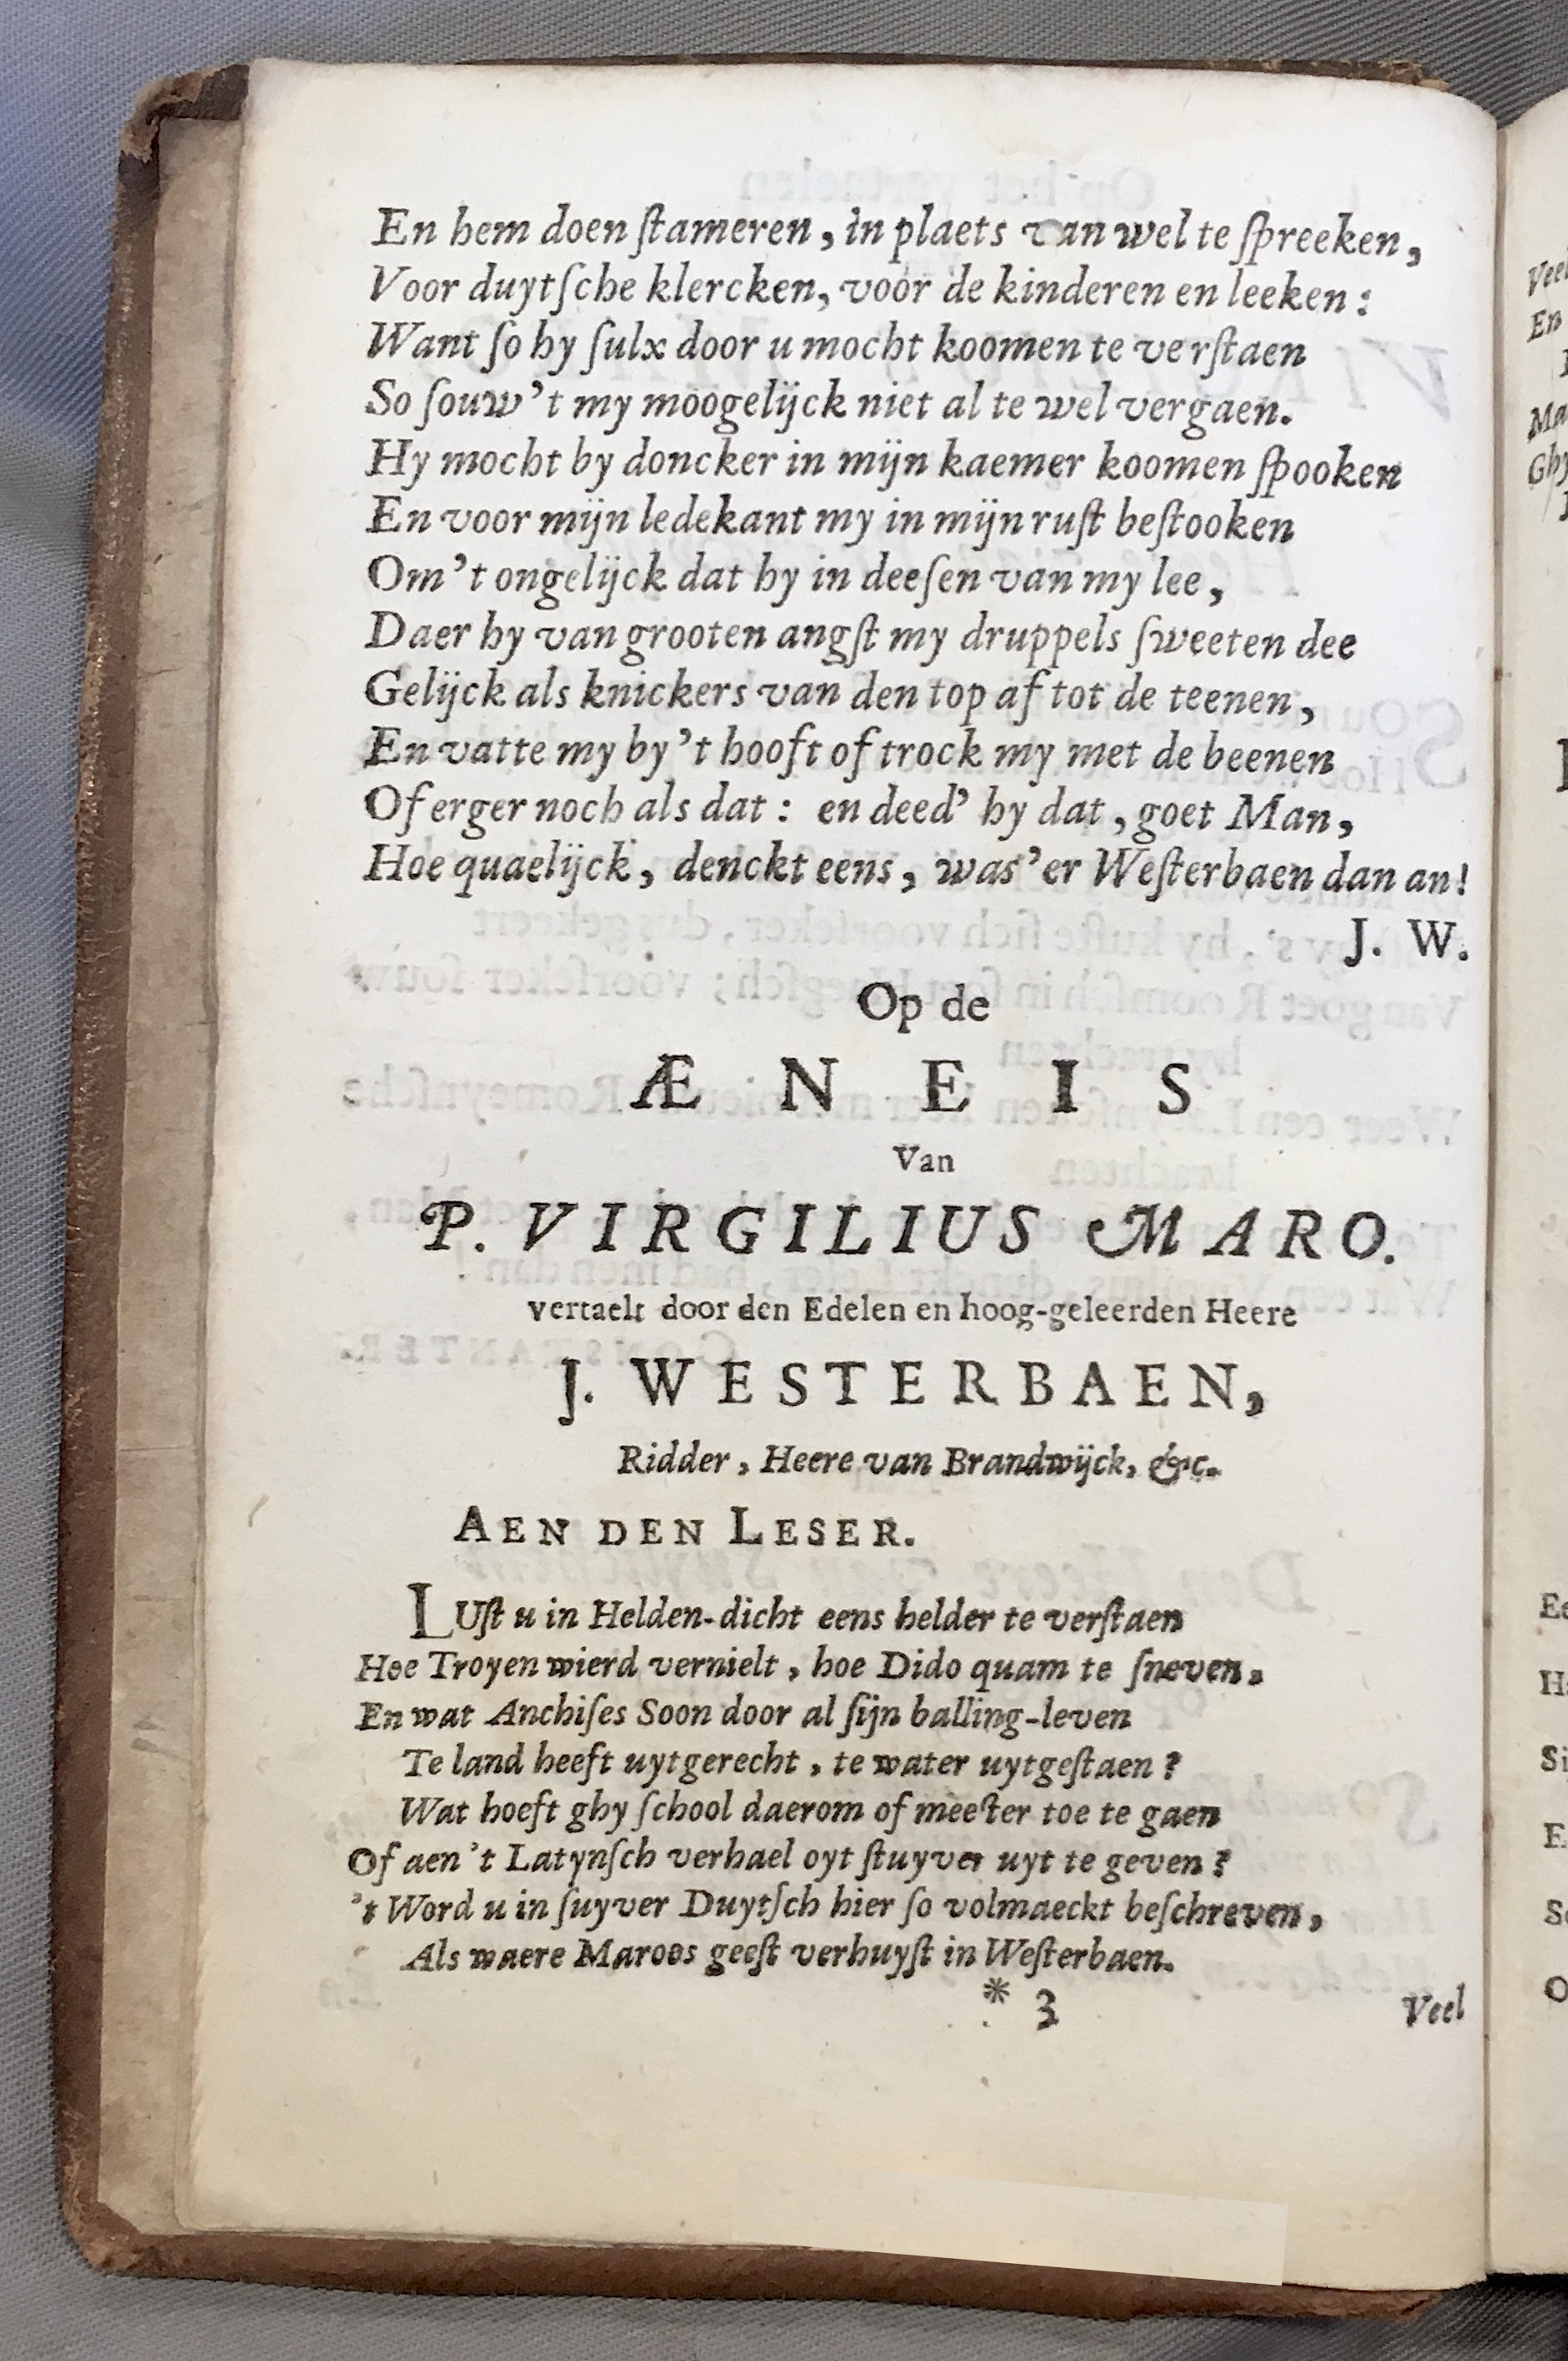 En hem doen ſtameren, in plaets van wel te ſpreeken,
Voor duytſche klercken, voor de kinderen en leeken:
Want ſo hy ſulx door u mocht koomen te verſtaen
So ſouw't my moogelijck niet al te wel vergaen.
Hy mocht by doncker in mijn kaemer koomen ſpooken
En voor mijn ledekant my in mijn ruſt beſtooken
Om't ongelijck dat hy in deeſen van my lee,
Daer hy van grooten angſt my druppels ſweeten dee
Gelijck als knickers van den top af tot de teenen,
En vatte my by't hooft of trock my met de beenen
Of erger noch als dat: en deed' hy dat, goet Man,
Hoe quaelijck, denckt eens, was'er Weſterbaen dan an!
J. W.
Op de
ÆNEIS
Van
P. VIRGILIUS MARO.
vertaelt door den Edelen en hoog-geleerden Heere
J. WESTERBAEN,
Ridder, Heere van Brandwijck, &c.
AEN DEN LESER.
LUſt u in Helden-dicht eens helder te verſtaen
Hoe Troyen wierd vernielt, hoe Dido quam te ſneven,
En wat Anchiſes Soon door al ſijn balling-leven
Te land heeft uytgerecht, te water uytgeſtaen?
Wat hoeft ghy ſchool daerom of meeſter toe te gaen
Of aen't Latynſch verhael oyt ſtuyver uyt te geven?
't Word u in ſuyver Duytſch hier ſo volmaeckt beſchreven,
Als waere Maroos geeſt verhuyſt in Weſterbaen.
* 3
Veel